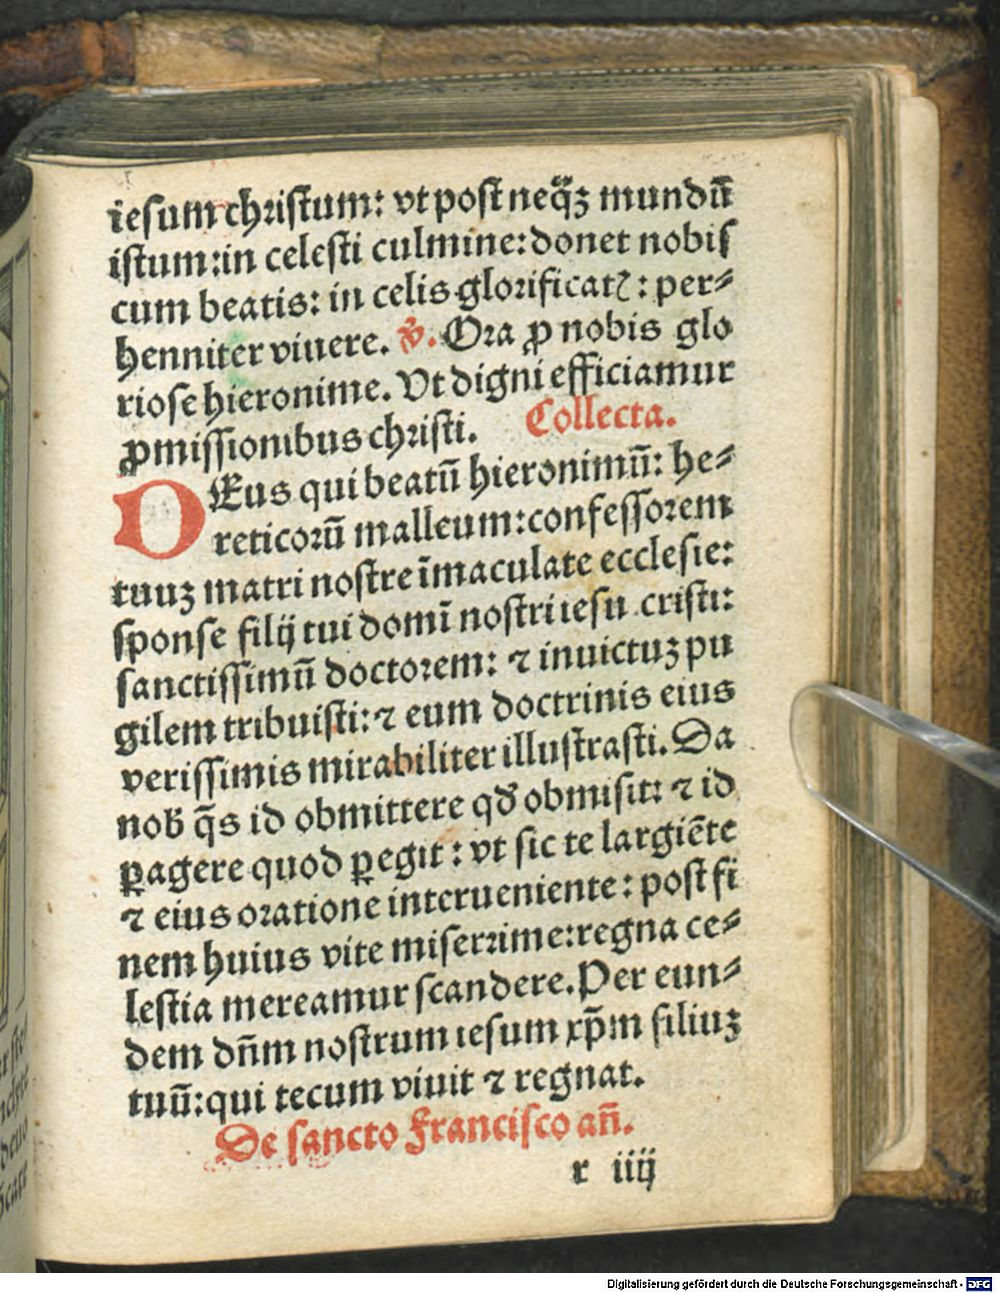 iesum christum: vt post neq̃ꝫ mundū
istum:in celesti culmine:donet nobis
cum beatis: in celis glorificatꝭ: per⸗
henniter viuere. ꝟ. Ora ꝓ nobis glo
riose hieronime. Vt digni efficiamur
ꝓmissionibus christi. Collecta.
DEus qui beatū hieronimū: he⸗
reticorū malleum:confessorem
tuuꝫ matri nostre īmaculate ecclesie:
sponse filij tui domī nostri iesu cristi:
sanctissimū doctorem: ⁊ inuictuꝫ pu
gilem tribuisti:⁊ eum doctrinis eius
verissimis mirabiliter illustrasti. Da
nob̄ q̄s id obmittere qđ obmisit: ⁊ id
ꝑagere quod ꝑegit: vt sic te largiēte
⁊ eius oratione interueniente: post fi
nem huius vite miserrime:regna ce⸗
lestia mereamur scandere. Per eun⸗
dem dn̄m nostrum iesum xp̄m filiuꝫ
tuū:qui tecum viuit ⁊ regnat.
De sancto Francisco an̄.
r iiij
Digitalisierung gefördert durch die Deutsche Forschungsgemeinschaft - DFG